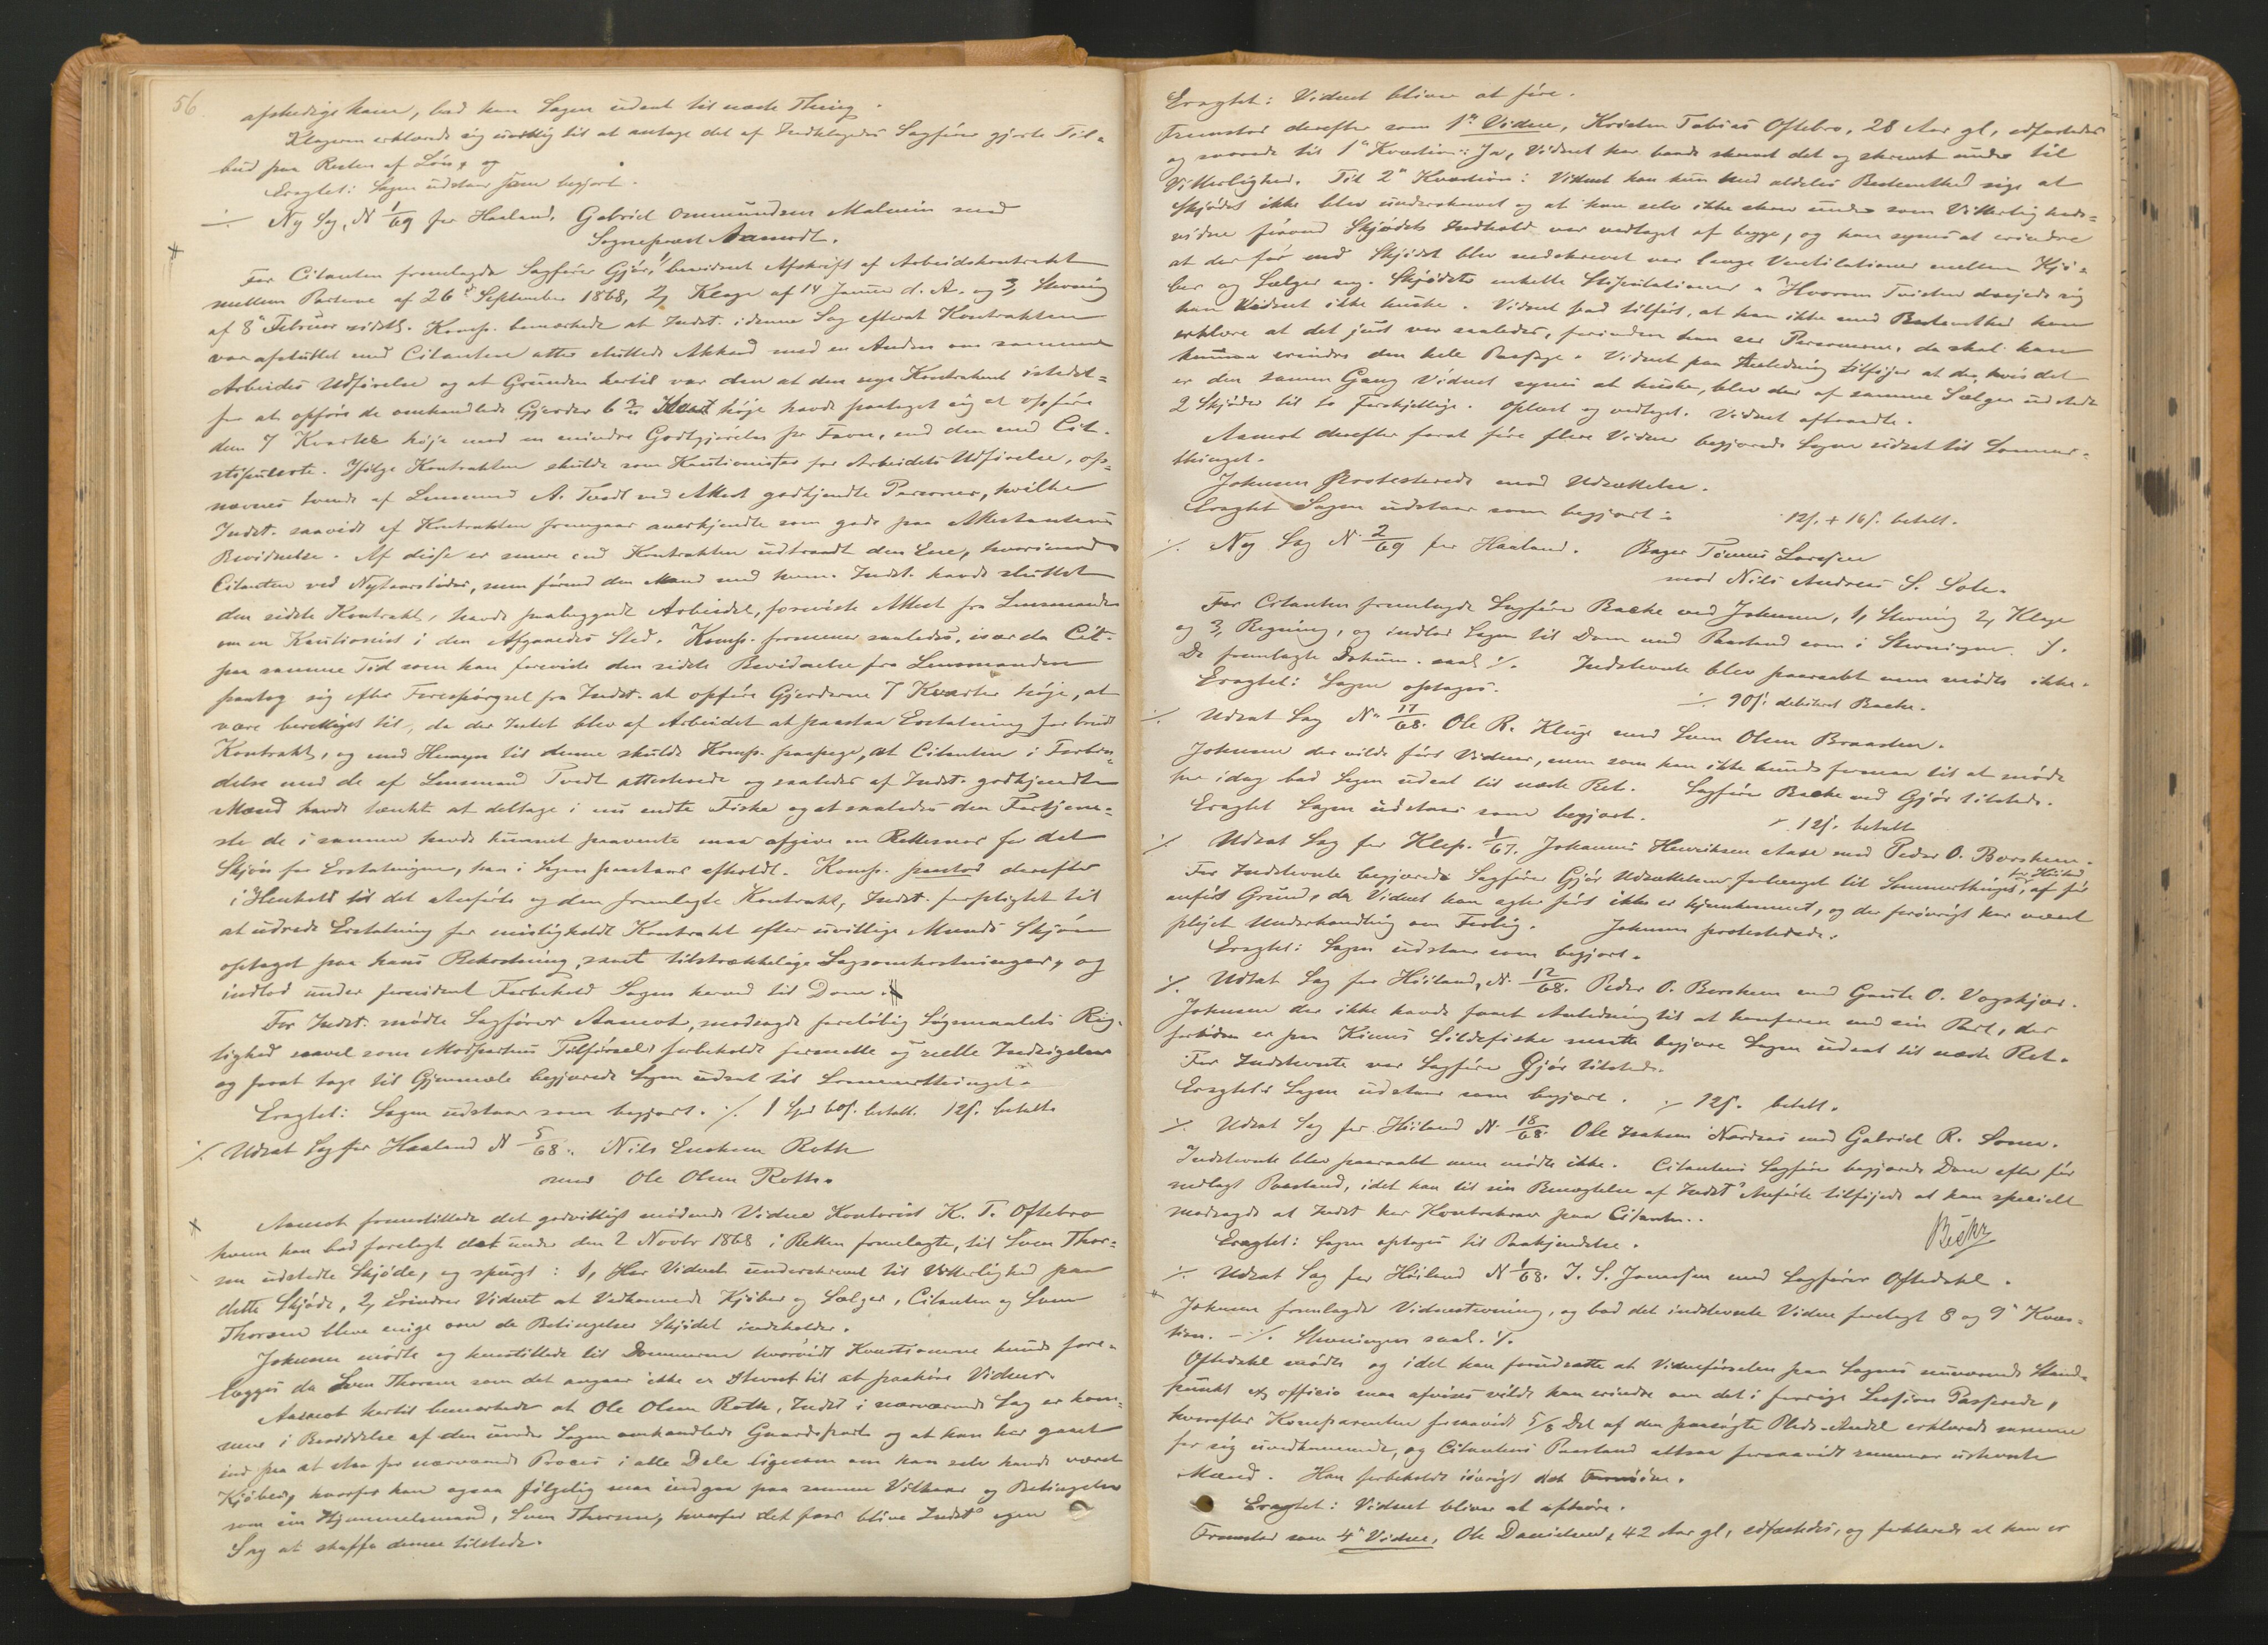 56
afskedige ham, bad han Sagen udsat til næste Thing.
Klageren erklærede sig uvillig til at antage det af Indklagedes Sagfører gjorte Til-
bud paa Resten af Løn, og
Eragtet: Sagen udstaar som begjært.
Ny Sag, N 1/69 for Haaland. Gabriel Ommundsen Malmin mod
Sognepræst Aamodt.
For Citanten fremlagde Sagfører Gjør 1, bevidnet Afskrift af Arbeidskontrakt
mellem Parterne af 26d September 1868, 2, Klage af 14 Januar d. A. og 3, Stevning
af 8n Februar sidstl. Komp. bemærkede at Indst. i denne Sag efterat Kontrakten
var afsluttet med Citanten atter sluttede Akkord med en Anden om samme
Arbeides Udførelse og at Grunden hertil var den at den nye Kontrahent istedet-
for at opføre de omhandlede Gjerder 6 høje havde paataget sig at opføre
dem 7 Kvarter høje mod en mindre Godtgjørelse pr Favn, end den med Cit.
stipulerte. Ifølge Kontrakten skulde som Kautionister for Arbeidets Udførelse, op-
nævnes tvende af Lensmand A. Tvedt ved Attest godkjendte Personer, hvilke
Indst. saavidt af Kontrakten fremgaar anerkjendte som gode paa Attestantens
Bevidnelse. Af disse er senere end Kontrakten udtraadt den Ene, hvorimod
Citanten ved Nytaarstider, men førend den Mand med hvem Indst. havde sluttet
den sidste Kontrakt, havde paabegyndt Arbeidet, foreviste Attest fra Lensmanden
om en Kautionist i den Afgaaedes Sted. Komp. formener saaledes, især da Cit.
paa samme Tid som han foreviste den sidste Bevidnelse fra Lensmanden
paatog sig efter Forespørgsel fra Indst. at opføre Gjerderne 7 Kvarter høje, at
være berettiget til, da der Intet blev af Arbeidet at paastaa Erstatning for brudt
Kontrakt, og med Hensyn til denne skulde Komp. paapege, at Citanten i Forbin-
delse med de af Lensmand Tvedt attesterede og saaledes af Indst. godkjendte
Mænd havde tænkt at deltage i nu endte Fiske og at saaledes den Fortjene-
ste de i samme havde kunnet paavente maa afgive en Rettesnor for det
Skjøn for Erstatningen, han i Sagen paastaar afholdt. Komp. paastod derefter
i Henhold til det Anførte og den fremlagte Kontrakt, Indst. forpligtet til
at udrede Erstatning for misligholdt Kontrakt efter uvillige Mænds Skjøn
optaget paa hans Bekostning, samt tilstrækkelige Sagsomkostninger, og
indlod under fornødent Forbehold Sagen herved til Dom.
For Indst. mødte Sagfører Aamot, modsagde foreløbig Søgsmaalets Rig-
tighed saavel som Modpartens Tilførsel, forbeholdt formelle og reelle Indsigelser
og forat tage til Gjenmæle begjærede Sagen udsat til Sommerthinget.
Eragtet: Sagen udstaar som begjært. ./. 1 Spd 60s. betalt. 12s. betalt.
./. Udsat Sag for Haaland N 5/68. Nils Enoksen Roth
mod Ole Olsen Roth.
Aamot fremstillede det godvilligt mødende Vidne Kontorist K. T. Oftebro
hvem han bad forelagt det under den 2 Novbr 1868 i Retten fremlagte, til Sven Thor-
sen udstedte Skjøde, og spurgt: 1, Har Vidnet underskrevet til Vitterlighed paa
dette Skjøde, 2, Erindrer Vidnet at Vedkommende Kjøber og Sælger, Citanten og Sven
Thorsen bleve enige om de Betingelser Skjødet indeholder.
Johnsen mødte og henstillede til Dommeren hvorvidt Kvæstionerne kunde fore-
lægges da Sven Thorsen som det angaar ikke er Stevnet til at paahøre Vidner.
Aamot hertil bemærkede at Ole Olsen Roth, Indst i nærværende Sag er kom-
men i Besiddelse af den under Sagen omhandlede Gaardspart og at han har gaaet
ind paa at staa for nærværende Proces i alle Dele ligesom om han selv havde været
Kjøber, hvorfor han ogsaa følgelig maa indgaa paa samme Vilkaar og Betingelser
som sin Hjemmelsmand, Sven Thorsen, hvorfor det faar blive Indsts egen
Sag at skaffe denne tilstede.
Eragtet: Vidnet bliver at føre.
Fremstod derefter som 1n Vidne, Kristen Tobias Oftebro, 28 Aar gl, edfæstedes
og svarede til 1n Kvæstion: Ja, Vidnet har baade skrevet det og skrevet under til
Vitterlighed. Til 2n Kvæstion: Vidnet kan kun med aldeles Bestemthed sige at
Skjødet ikke blev underskrevet og at han selv ikke skrev under som Vitterligheds-
vidne førend Skjødets Indhold var vedtaget af begge, og han synes at erindre
at der før end Skjødet blev nedskrevet var lange Ventilationer mellem Kjø-
ber og Sælger ang. Skjødets enkelte Stipulationer. Hvorom Tvisten dreiede sig
kan Vidnet ikke huske. Vidnet bad tilført, at han ikke med Bestemthed kan
erklære at det just var saaledes, forinden han ser Personerne, da skal han
kunne erindre den hele Passage. Vidnet paa Anledning tilføjer at der, hvis det
er den samme Gang Vidnet synes at huske, blev der af samme Sælger udstedt
2 Skjøder til to Forskjellige. Oplæst og vedtaget. Vidnet aftraadte.
Aamot derefter forat føre flere Vidner begjærede Sagen udsat til Sommer-
thinget.
Johnsen protesterede mod Udsættelse.
Eragtet Sagen udstaar som begjært: 12s. + 16s. betalt.
./. Ny Sag N. 2/69 for Haaland. Bager Tønnes Larssen
mod Nils Andreas S. Sole.
For Citanten fremlagde Sagfører Backe ved Johnsen, 1, Stevning 2, Klage
og 3, Regning, og indlod Sagen til Dom med Paastand som i Stevningen. ./.
De fremlagte Dokum. saal. ./. Indstevnte blev paaraabt men mødte ikke.
Eragtet: Sagen optages. ./. 90s. debiteret Backe.
./. Udsat Sag N. 17/68. Ole R. Kluge mod Sven Olsen Braasten.
Johnsen der vilde føre Vidner, men som han ikke kunde formaa til at møde
her idag bad Sagen udsat til næste Ret. Sagfører Backe ved Gjør tilstede.
Eragtet Sagen udstaar som begjært. ./. 12s. betalt
./. Udsat Sag for Klep. 1/67. Johannes Henriksen Aase mod Peder O. Borsheim.
For Indstevnte begjærede Sagfører Gjør Udsættelsen forlænget til Sommerthinget for Høiland, af før
anført Grund, da Vidnet han agter ført ikke er hjemkommet, og der forøvrigt har været
plejet Underhandling om Forlig. Johnsen protesterede.
Eragtet: Sagen udstaar som begjært.
./. Udsat Sag for Høiland, N. 12/68. Peder O. Borsheim mod Gaute O. Vagskjær.
Johnsen der ikke havde faaet Anledning til at konferere med sin Part, der
fortiden er paa Kinns Sildefiske maatte begjære Sagen udsat til næste Ret.
For Indstevnte var Sagfører Gjør tilstede.
Eragtet: Sagen udstaar som begjært. ./. 12s. betalt.
./. Udsat Sag for Høiland N. 18/68. Ole Isaksen Nordraas mod Gabriel R. Somme.
Indstevnte blev paaraabt men mødte ikke. Citantens Sagfører begjærede Dom efter før
nedlagt Paastand, idet han til sin Benægtelse af Indsts Anførte tilføjede at han specielt
modsagde at Indst har Kontrakrav paa Citanten..
Eragtet: Sagen optages til Paakjendelse.
./. Udsat Sag for Høiland N 1/68. T. S. Jonassen mod Sagfører Oftedahl.
Johnsen fremlagde Vidnestevning, og bad det indstevnte Vidne forelagt 8 og 9n Kvæs-
tion. - ./. Stevningen saal. ./.
Oftedahl mødte og idet han forudsatte at Vidneførselen paa Sagens nuværende Stand-
punkt ex officio maa afvises vilde han erindre om det i forrige Session Passerede,
hvorefter Komparenten forsaavidt 5/8 Del af den paasøgte erklærede samme
for sig uvedkommende, og Citantens Paastand altsaa forsaavidt rammer ustevnte
Mænd. Han forbeholdt iøvrigt det Fornødne.
Eragtet: Vidnet bliver at afhøre.
Fremstod som 4n Vidne, Ole Danielsen, 42 Aar gl, edfæstedes, og forklarede at han er